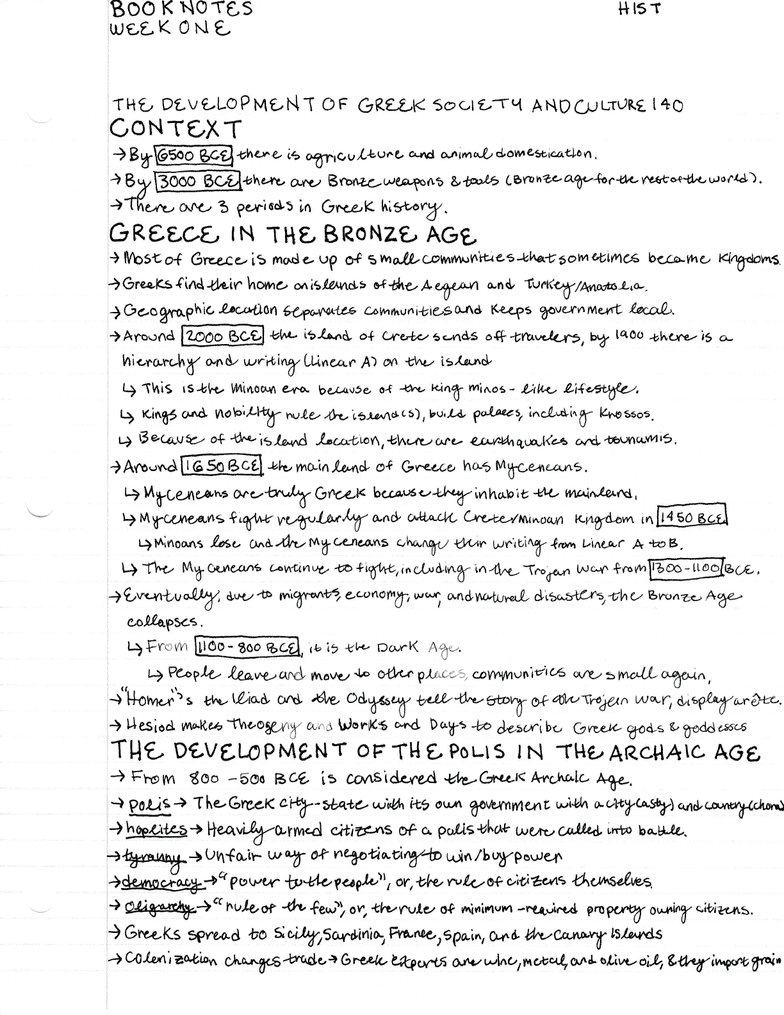 BOOK NOTES HIST
WEEK ONE
THE DEVELOPMENT OF GREEK SOCIETY AND CULTURE 140
CONTEXT
→ By 6500 BCE there is agriculture and animal domestication.
→ By 3000 BCE there are Bronze weapons & tools (Bronze age for the rest of the world).
→ There are 3 periods in Greek history.
GREECE IN THE BRONZE AGE
→ Most of Greece is made up of small communities that sometimes became kingdoms.
→ Greeks find their home on islands of the Aegean and Turkey/Anatolia.
→ Geographic location separates communities and keeps government local.
→ Around 2000 BCE the island of Crete sends off travelers, by 1900 there is a
hierarchy and writing (Linear A) on the island
↳ This is the Minoan era because of the king minos-like lifestyle.
↳ Kings and nobility rule the island(s), build palaces, including Knossos.
↳ Because of the island location, there are earthquakes and tsunamis.
→ Around 1650 BCE, the mainland of Greece has Myceneans.
↳ Myceneans are truly Greek because they inhabit the mainland.
↳ Myceneans fight regularly and attack Crete/Minoan Kingdom in 1450 BCE
↳ Minoans lose and the Myceneans change their writing from Linear A to B.
↳ The Myceneans continue to fight, including in the Trojan War from 1300-1100 BCE.
→ Eventually, due to migrants, economy, war, and natural disasters, the Bronze Age
collapses.
↳ From 1100-800 BCE, it is the Dark Age.
↳ People leave and move to other places, communities are small again,
→ "Homer"'s the Iliad and the Odyssey tell the story of the Trojan War, display arête.
→ Hesiod makes Theogeny and Works and Days to describe Greek gods & goddesses
THE DEVELOPMENT OF THE POLIS IN THE ARCHAIC AGE
→ From 800-500 BCE is considered the Greek Archaic Age.
→ polis → The Greek city-state with its own government with a city (asty) and country (chora)
→ hoplites → Heavily armed citizens of a polis that were called into battle.
→ tyranny → Unfair way of negotiating to win/buy power
→ democracy → "power to the people", or, the rule of citizens themselves.
→ oligarchy → "rule of the few", or, the rule of minimum-required property owning citizens.
→ Greeks spread to Sicily, Sardinia, France, Spain, and the Canary Islands
→ Colenization changes trade → Greek exports are wine, metal, and olive oil, & they import grain